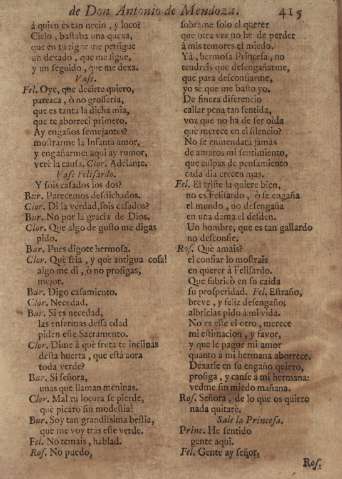 de Don Antonio de Mendoza. 415
à quien es tan necio, y loco?
Cielo, bastaba una quexa,
que en tu rigor me persigue
un dexado, que me sigue,
y un seguido, que me dexa.
Vase.
Fel. Oye, que decirte quiero,
parezca, ò no grosseria,
que es tanta la dicha mia,
que te aborrecì primero.
Ay engaños semejantes?
mostrarme la Infanta amor,
y engañarme aqui ay rumor,
verè la causa. Clor. Adelante.
Vase Felisardo.
Y sois casados los dos?
Bur. Parecemos desdichados.
Clor. Dì la verdad, sois casados?
Bur. No por la gracia de Dios.
Clor. Que algo de gusto me digas
pido.
Bur. Pues digote hermosa.
Clor. Què fria, y què antigua cosa!
algo me dì, ò no prosigas,
mejor.
Bur. Digo casamiento.
Clor. Necedad.
Bur. Si es necedad,
las enfermas dessa edad
piden esse Sacramento.
Clor. Dime à què fruta te inclinas
desta huerta, que està aora
toda verde?
Bur. Si señora,
unas que llaman meninas.
Clor. Mal tu locura se pierde,
què picaro sin modestia!
Bur. Soy tan grandissima bestia,
que me voy tras esse verde.
Fel. No temais, hablad.
Ros. No puedo,
sobrame solo el querer
que otra vez no he de perder
à mis temores el miedo.
Yà, hermosa Princesa, no
tendreis que desengañarme,
que para desconfiarme,
yo sè que me basto yo.
De fineza diferencio
callar pena tan sentida,
voz que no ha de ser oida
què merece en el silencio?
No se enmendarà jamàs
de amaros mi sentimiento,
que culpas de pensamiento
cada dia crecen mas.
Fel. El triste la quiere bien,
no es Felisardo, ò se engaña
el mundo, no desengaña
en una dama el desden.
Un hombre, que es tan gallardo
no desconfie.
Ros. Que amais?
el confiar lo mostrais
en querer à Felisardo.
Que fabricò en su caida
su prosperidad. Fel. Estraño,
breve, y feliz desengaño;
albricias pido à mi vida.
No es esse el otro, merece
mi estimacion, y favor,
y que le pague mi amor
quanto à mi hermana aborrece.
Dexarle en su engaño quiero,
prosiga, y canse à mi hermana:
vedme sin miedo mañana.
Ros. Señora, de lo que os quiero
nada quitarè.
Sale la Princesa.
Princ. He sentido
gente aqui.
Fel. Gente ay señor,
Ros.